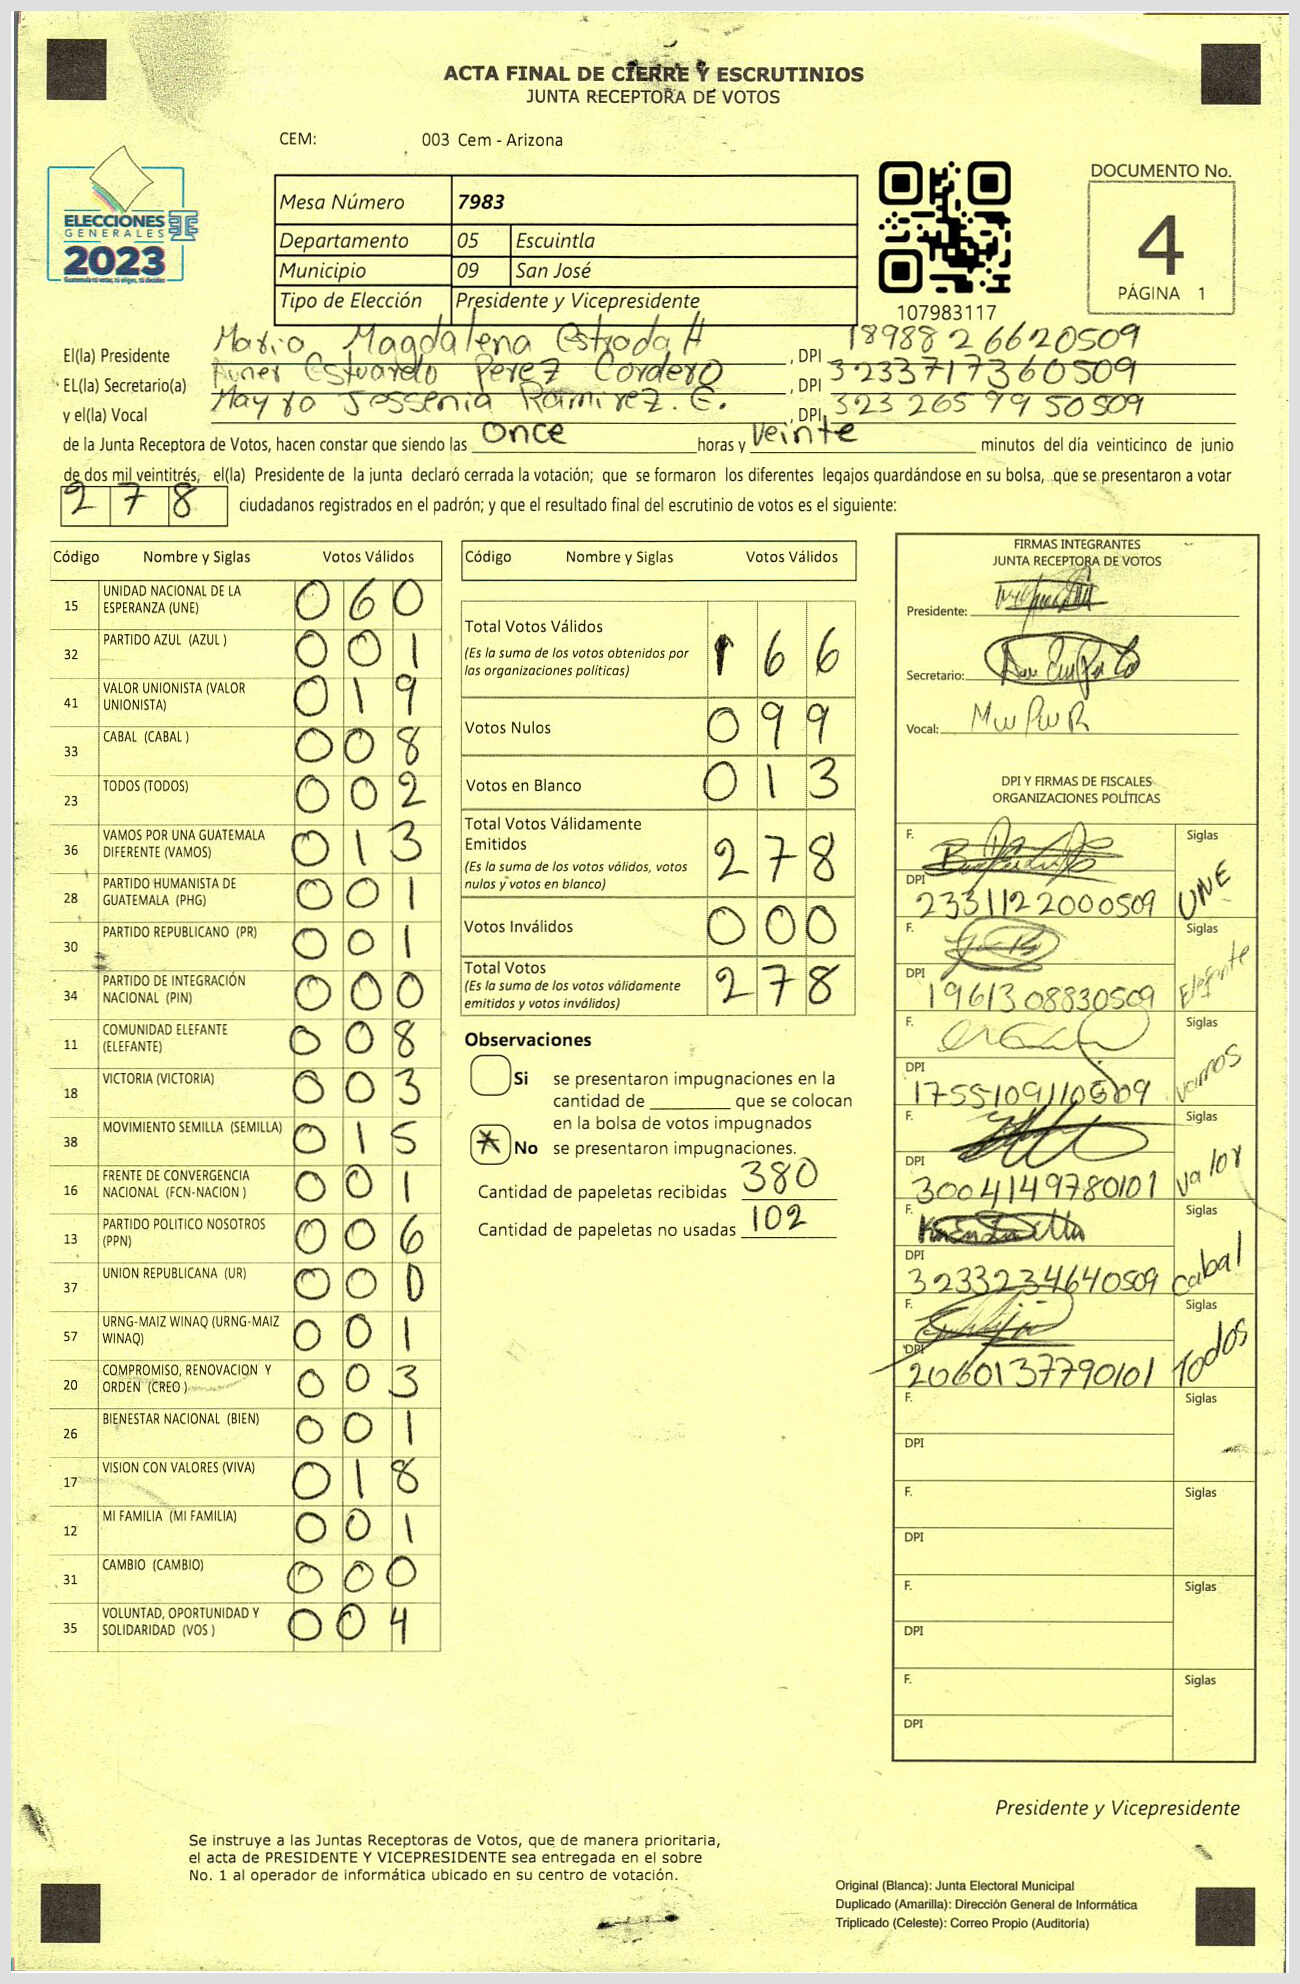 ACTA FINAL DE CIERRE Y ESCRUTINIOS
JUNTA RECEPTORA DE VOTOS
CEM: 003 Cem - Arizona
ELECCIONES
GENERALES
2023
Mesa Número 7983
Departamento 05 Escuintla
Municipio 09 San José
Tipo de Elección Presidente y Vicepresidente
107983117
DOCUMENTO No.
4
PÁGINA 1
El(la) Presidente Maria Magdalena Estrada H , DPI 1898826620509
EL(la) Secretario(a) Estuardo Perez Cordero , DPI 3233717360509
y el(la) Vocal Mayra Jessenia Ramirez. E. , DPI 3232659950509
de la Junta Receptora de Votos, hacen constar que siendo las once horas y veinte minutos del día veinticinco de junio
de dos mil veintitrés, el(la) Presidente de la junta declaró cerrada la votación; que se formaron los diferentes legajos guardándose en su bolsa, que se presentaron a votar
278 ciudadanos registrados en el padrón; y que el resultado final del escrutinio de votos es el siguiente:
Código Nombre y Siglas Votos Válidos
15 UNIDAD NACIONAL DE LA ESPERANZA (UNE) 060
32 PARTIDO AZUL (AZUL ) 001
41 VALOR UNIONISTA (VALOR UNIONISTA) 019
33 CABAL (CABAL ) 008
23 TODOS (TODOS) 002
36 VAMOS POR UNA GUATEMALA DIFERENTE (VAMOS) 013
28 PARTIDO HUMANISTA DE GUATEMALA (PHG) 001
30 PARTIDO REPUBLICANO (PR) 001
34 PARTIDO DE INTEGRACIÓN NACIONAL (PIN) 000
11 COMUNIDAD ELEFANTE (ELEFANTE) 008
18 VICTORIA (VICTORIA) 003
38 MOVIMIENTO SEMILLA (SEMILLA) 015
16 FRENTE DE CONVERGENCIA NACIONAL (FCN-NACION ) 001
13 PARTIDO POLITICO NOSOTROS (PPN) 006
37 UNION REPUBLICANA (UR) 000
57 URNG-MAIZ WINAQ (URNG-MAIZ WINAQ) 001
20 COMPROMISO, RENOVACION Y ORDEN (CREO ) 003
26 BIENESTAR NACIONAL (BIEN) 001
17 VISION CON VALORES (VIVA) 018
12 MI FAMILIA (MI FAMILIA) 001
31 CAMBIO (CAMBIO) 000
35 VOLUNTAD, OPORTUNIDAD Y SOLIDARIDAD (VOS ) 004
Código Nombre y Siglas Votos Válidos
Total Votos Válidos 166
(Es la suma de los votos obtenidos por
las organizaciones políticas)
Votos Nulos 099
Votos en Blanco 013
Total Votos Válidamente
Emitidos 278
(Es la suma de los votos válidos, votos
nulos y votos en blanco)
Votos Inválidos 000
Total Votos 278
(Es la suma de los votos válidamente
emitidos y votos inválidos)
Observaciones
Si se presentaron impugnaciones en la
cantidad de ________ que se colocan
en la bolsa de votos impugnados
No se presentaron impugnaciones.
Cantidad de papeletas recibidas 380
Cantidad de papeletas no usadas 102
FIRMAS INTEGRANTES
JUNTA RECEPTORA DE VOTOS
Presidente:
Secretario:
Vocal:
DPI Y FIRMAS DE FISCALES
ORGANIZACIONES POLÍTICAS
F. Siglas
DPI 2331122000509 UNE
F. Siglas
DPI 1961308830509 Elefante
F. Siglas
DPI vamos
F. Siglas
DPI 3004149780101 valor
F. Siglas
DPI 3233234640509 cabal
F. Siglas
DPI 2060137790101 Todos
F. Siglas
DPI
F. Siglas
DPI
F. Siglas
DPI
F. Siglas
DPI
Presidente y Vicepresidente
Se instruye a las Juntas Receptoras de Votos, que de manera prioritaria,
el acta de PRESIDENTE Y VICEPRESIDENTE sea entregada en el sobre
No. 1 al operador de informática ubicado en su centro de votación.
Original (Blanca): Junta Electoral Municipal
Duplicado (Amarilla): Dirección General de Informática
Triplicado (Celeste): Correo Propio (Auditoría)